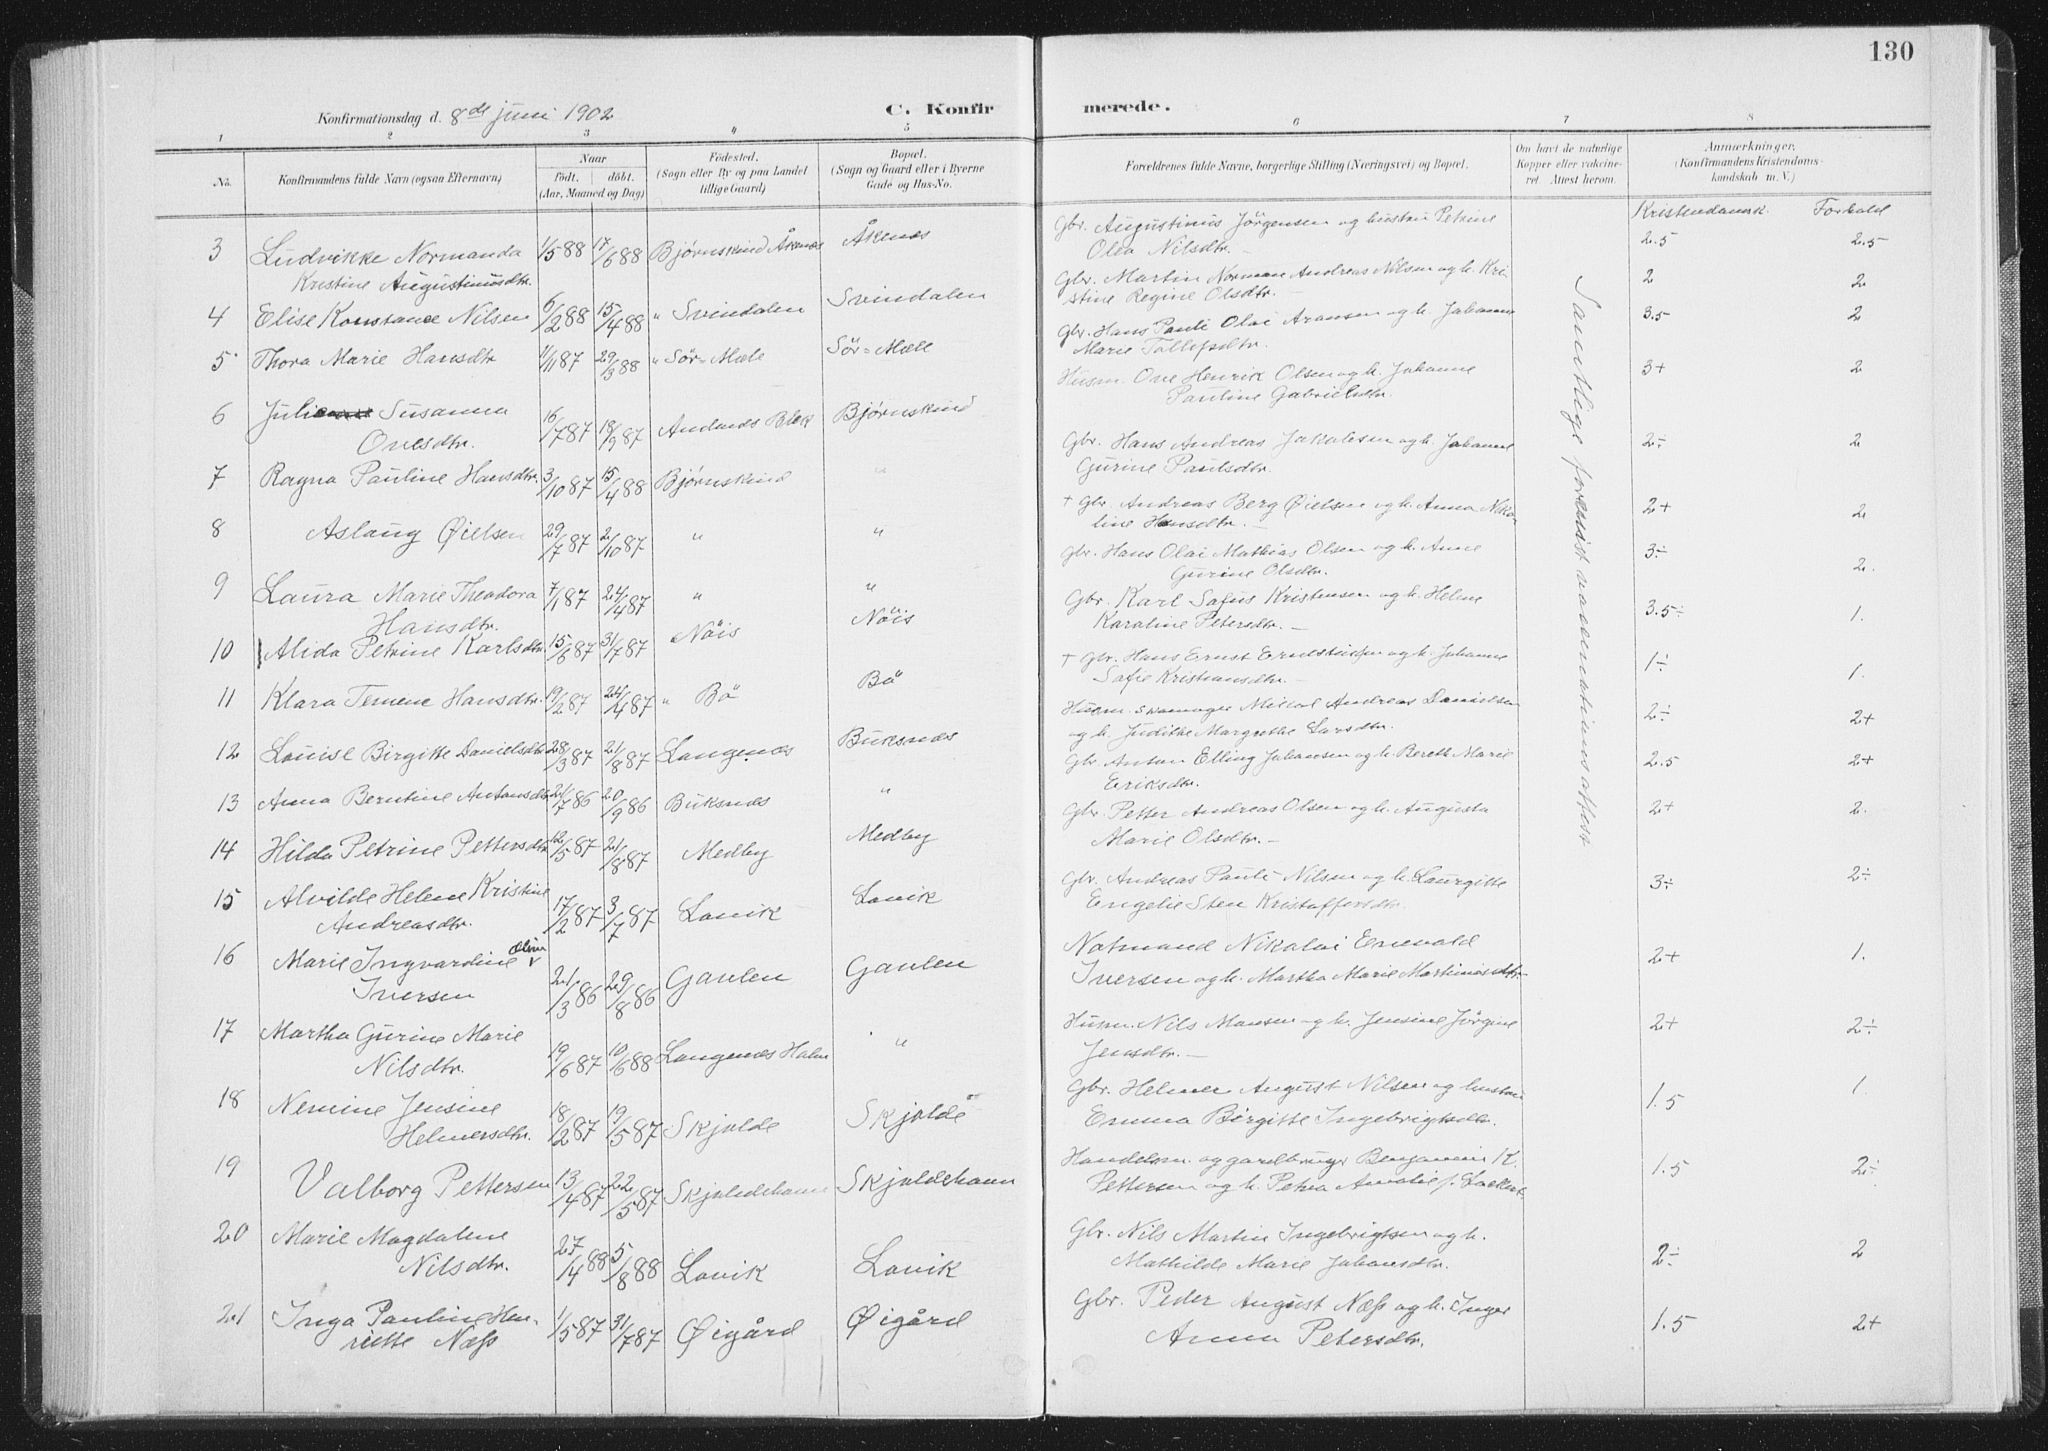 130
Konfirmationsdag d. 8de juni 1902
C. Konfirmerede.
1 2 3 4 5 6 7 8
No.
Konfirmandens fulde Navn (ogsaa Efternavn)
Naar
födt. döbt.
(Aar, Maaned og Dag)
Födested.
(Sogn eller By og paa Landet
tillige Gaard)
Bopæl.
(Sogn og Gaard eller i Byerne
Gade og Hus-No.
Forældrenes fulde Navne, borgerlige Stilling (Næringsvei) og Bopæl.
Om havt de naturlige
Kopper eller vaccine-
ret. Attest herom.
Anmærkninger,
(Konfirmandens Kristendoms-
kundskab m. V.)
Kristendomsk. Forhold
Samtlige forevist vaccinationsattest
3 Ludvikke Normanda 1/5 88 17/6 88 Bjørnskind Åkenæs Åkenæs Gbr. Augustinus Jörgensen og hustru Petrine 2.5 2.5
Kristine Augustinusdtr. Olea Nilsdtr. –
4 Elise Konstance Nilsen 6/2 88 15/4 88 " Svindalen Svindalen Gbr. Martin Norman Andreas Nilsen og h. Kri- 2 2
stine Regine Olsdtr. –
5 Thora Marie Hansdtr 1/11 87 29/3 88 " Sör-Mæle Sör-Mæle Gbr. Hans Pauli Olai Aronsen og h. Johanne 3.5 2
Marie Tollefsdtr.
6 Juli Susanna 16/7 87 18/9 87 Andenes Blek Bjørnskind Husm. Ove Henrik Olsen og h. Johanne 3+ 2
Ovesdtr. Pauline Gabrielsdtr.
7 Ragna Pauline Hansdtr. 3/10 87 15/4 88 Bjørnskind " Gbr. Hans Andreas Jakobsen og h. Johanne 2÷ 2
Gurine Paulsdtr.
8 Aslaug Øielsen 29/7 87 2/10 87 " " + Gbr. Andreas Berg Øielsen og h. Anna Niko- 2+ 2
line Hansdtr. –
9 Laura Marie Theodora 7/1 87 24/4 87 " " Gbr. Hans Olai Mathias Olsen og h. Anne 3÷ 2.
Hansdtr. Gurine Olsdtr.
10 Alida Petrine Karlsdtr 15/6 87 31/7 87 Nöis Nöis Gbr. Karl Sofus Kristensen og h. Helene 3.5÷ 1.
Karoline Petersdtr. –
11 Klara Temene Hansdtr. 19/2 87 24/4 87 " Bö Bö + Gbr. Hans Ernst Ernstsen og h. Johanne 1÷ 1.
Sofie Kristiansdtr. –
12 Louise Birgitte Danielsdtr 28/3 87 21/8 87 Langenæs Buksnæs Husm. skomager Mikal Andreas Danielsen 2÷ 2+
og h. Judithe Margrethe Larsdtr.
13 Anna Berntine Antonsdtr 21/7 86 20/9 86 Buksnæs " Gbr. Anton Elling Johansen og h. Bereth Marie 2.5 2+
Eriksdtr.
14 Hilda Petrine Pettersdtr 12/5 87 21/8 87 Medby Medby Gbr. Petter Andreas Olsen og h. Augusta 2+ 2.
Marie Olsdtr. –
15 Alvilde Helene Kristine 17/2 87 3/7 87 Lovik Lovik Gbr. Andreas Pauli Nilsen og h. Laurgitte 3÷ 2÷
Andreasdtr. Engelie Sten Kristoffersdtr.
16 Marie Ingvardine Oline 21/3 86 29/8 86 Gavlen Gavlen Notmand Nikolai Enevold 2+ 1.
Iversen Iversen og h. Martha Marie Martinusdtr.
17 Martha Gurine Marie 19/6 87 10/6 88 Langenæs Holm " Husm. Nils Monsen og h. Jensine Jörgine 2+ 2÷
Nilsdtr. Jensdtr. –
18 Nemine Jensine 18/2 87 19/5 87 Skjolde Skjolde Gbr. Helmer August Nilsen og hustru 1.5 1
Helmersdtr. Emma Birgitte Ingebrigtsdtr.
19 Valborg Pettersen 13/4 87 22/5 87 Skjoldehavn Skjoldehavn Handelsm. og gardbruger Benjamin K. 1.5 2÷
Pettersen og h. Petra Amalie f. Lockert
20 Marie Magdalene 27/4 88 5/8 88 Lovik Lovik Gbr. Nils Martin Ingebrigtsen og h. 2÷ 2
Nilsdtr. Mathilde Marie Johansdtr.
21 Inga Pauline Hen- 1/5 87 31/7 87 Øigård Øigård Gbr. Peder August Næss og h. Inger 1.5 2+
riette Næss Anna Petersdtr.